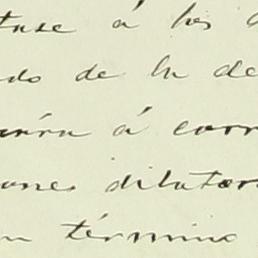 á los
do de la de
á corr
ones dilator
término